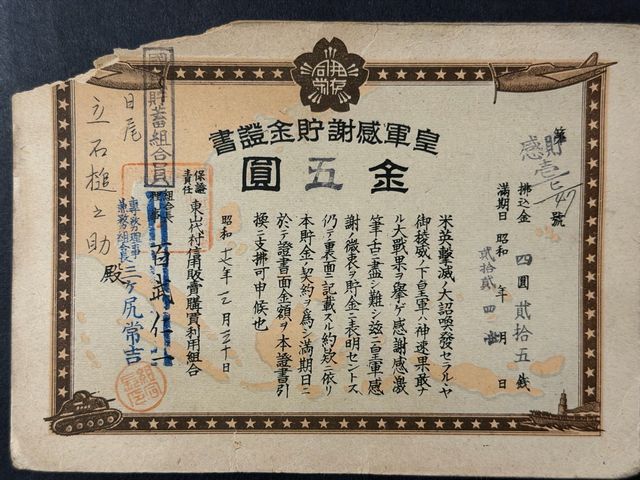 皇軍感謝貯金證書
金五圓
第貯感壹七二47號
拂込金 四圓貳拾五錢
滿期日 昭和貳拾貳年四月壹日
米英擊滅ノ大詔喚發セラルヤ
御稜威ノ下皇軍ハ神速果敢ナ
ル大戰果ヲ擧ゲ感謝感激
筆舌ニ盡シ難シ茲ニ皇軍感
謝ノ微衷ヲ貯金ニ表明セントス
仍テ裏面ニ記載スル約款ニ依リ
本貯金ノ契約ヲ爲シ滿期日ニ
於テ證書面金額ヲ本證書引
換ニ支拂可申候也
昭和一七年一二月三十日
保證責任 東山代村信用販賣購買利用組合
組合長
百武
專務理事
三ケ尻常吉
貯蓄組合員
日尾
立石槌之助殿